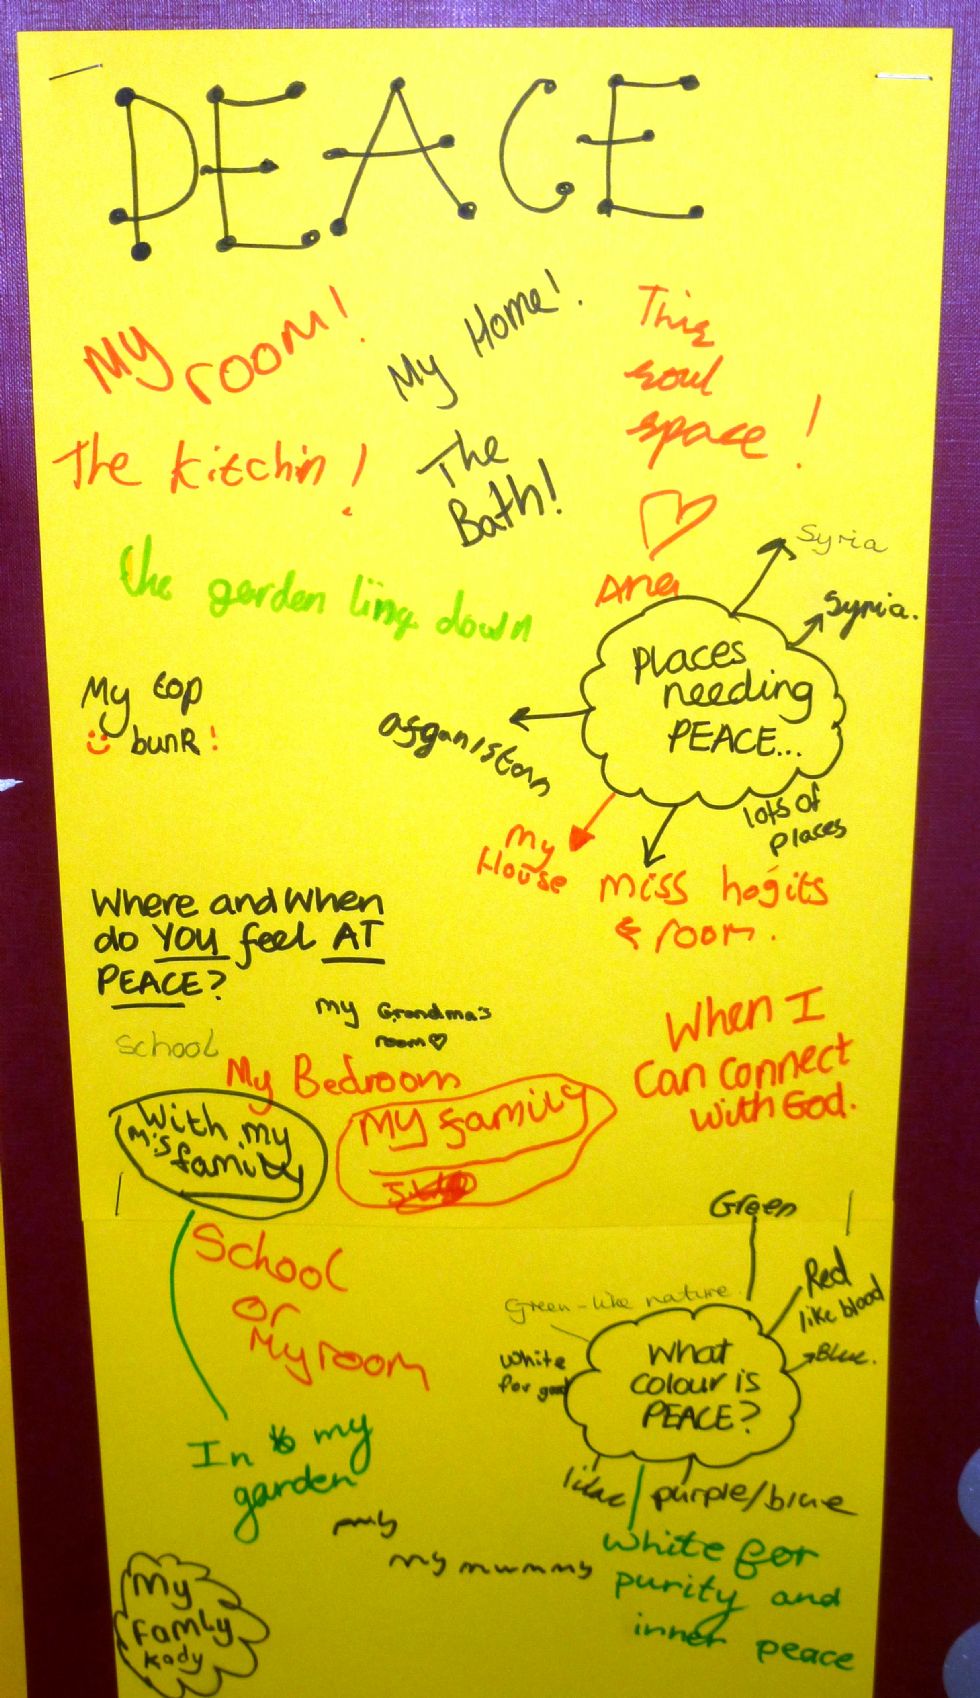 PEACE
My room!
My Home!
This
soul
space!
The kitchin!
The
Bath!
the garden ling down
Syria
Syria.
PLACES
needing
PEACE...
My top
bunk!
afganistan
lots of
places
My
House
miss hogits
room.
Where and When
do YOU feel AT
PEACE?
my Grandma's
room
School
My Bedroom
When I
Can Connect
with God.
With my
family
My family
School
or
My room
Green
Green-like nature
Red
like blood
Blue.
White
for good
What
colour is
PEACE?
lilac
purple/blue
White for
purity and
inner peace
In my
garden
my mummy
My
Famly
Kady